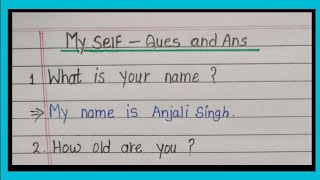 My Self - Ques and Ans
1 What is your name ?
⇒ My name is Anjali Singh.
2. How old are you ?